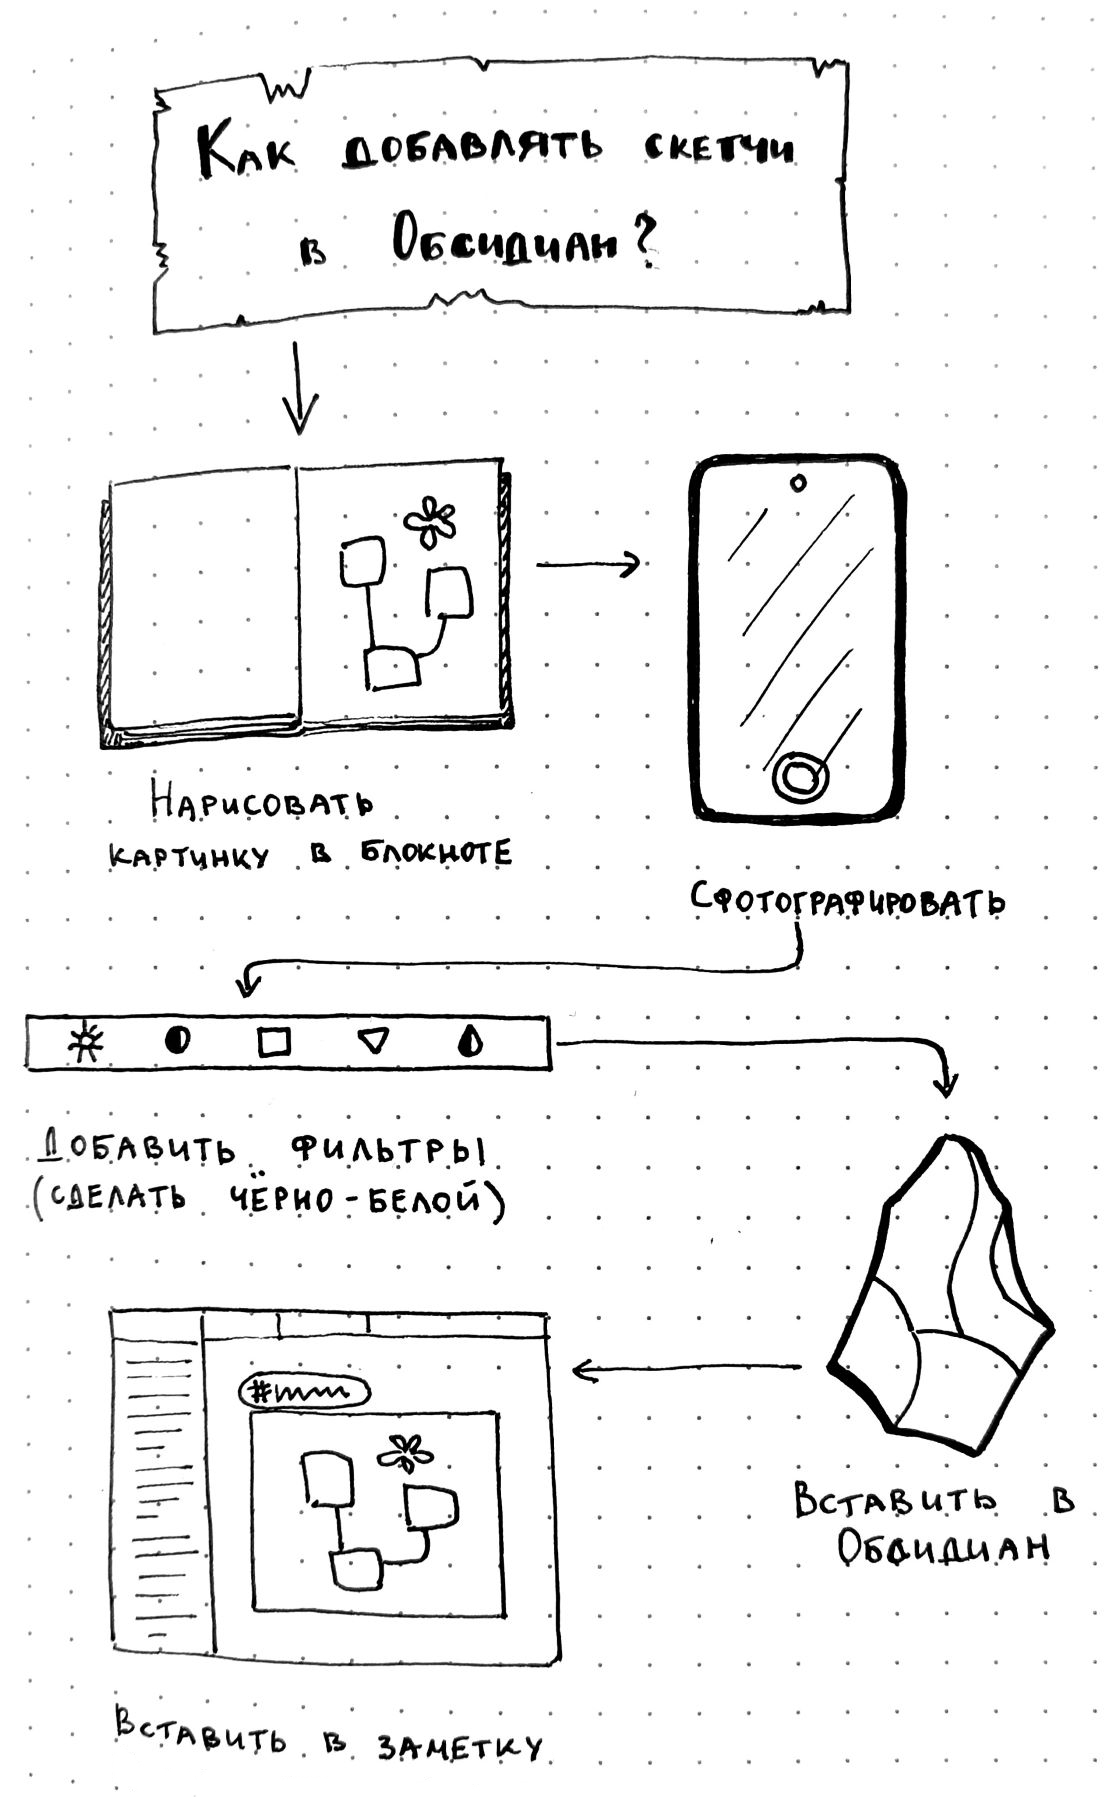 Как добавлять скетчи
в Обсидиан?
Нарисовать
картинку в блокноте
Сфотографировать
Добавить фильтры
(сделать чёрно-белой)
Вставить в
Обсидиан
#
Вставить в заметку